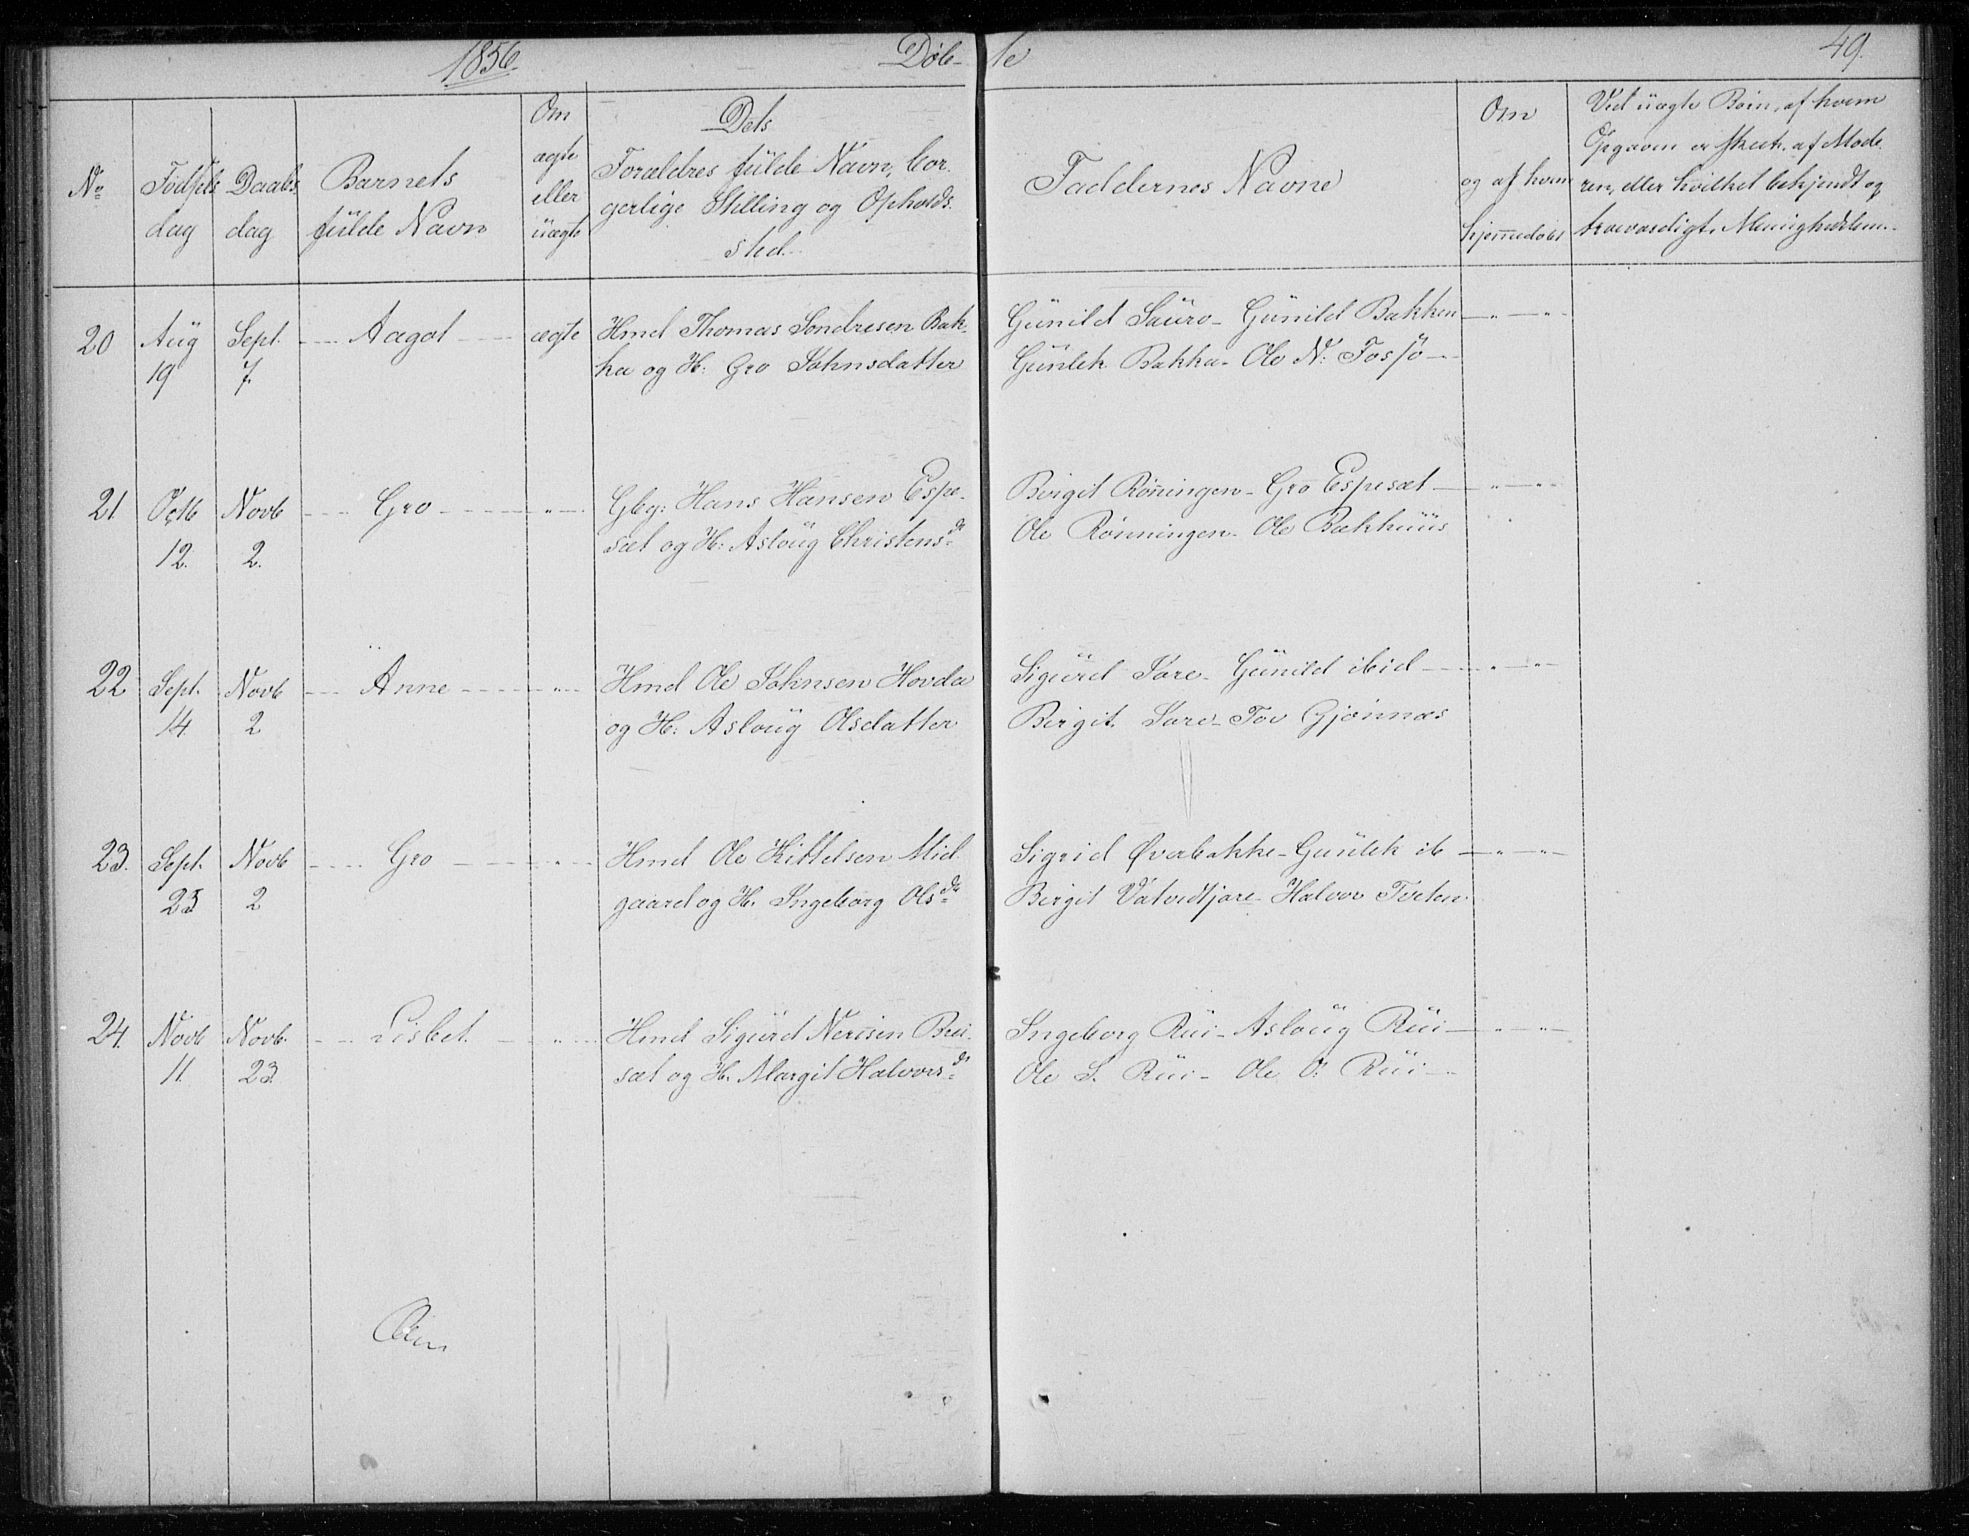 1856.
Døb-
te
49.
No
Fødsels
dag
Daabs
dag
Barnets
fulde Navn
Om
ægte
eller
uægte
Dets
Forældres fulde Navn, bor-
gerlige Stilling og Opholds-
sted.
Faddernes Navne
Om
og af hvem
hjemmedøbt
Ved uægte Børn, af hvem
Opgaven er skeet, af Mode-
ren, eller hvilket bekjendt og
troeværdigt Menighedslem.
20 Aug 19 Sept. 7. Aagot ægte Hmd Thomas Sondresen Bak-
ka og H: Gro Johnsdatter
Gunild Sauro- Gunild Bakken -"-"-
Gunlek Bakka- Ole N: Fossjø
21. Octb 12. Novb 2. Gro " Gbg: Hans Hansen Espe-
sæt og H: Asloug Christensdr
Birgit Rønningen- Gro Espesæt -"-"-
Ole Rønningen- Ole Bakhuus
22 Sept. 14 Novb 2 Anne " Hmd Ole Johnsen Hovda
og H: Asloug Olsdatter
Sigurd Jore- Gunild ibid -"-"-
Birgit Jore- Tov Gjønnæs
23. Sept. 25 Novb 2 Gro " Hmd Ole Kittelsen Mid-
gaard og H. Ingeborg Olsdr
Sigrid Øverbakke- Gunlek ib -"-"-
Birgit Vatvedtjore- Halvor Tveten
24. Novb 11. Novb. 23. Lisbet " Hmd Sigurd Nerisen Brei-
sæt og H. Margit Halvorsdr
Ingeborg Rui- Asloug Rui -"-"-
Ole S. Rui- Ole O: Rui